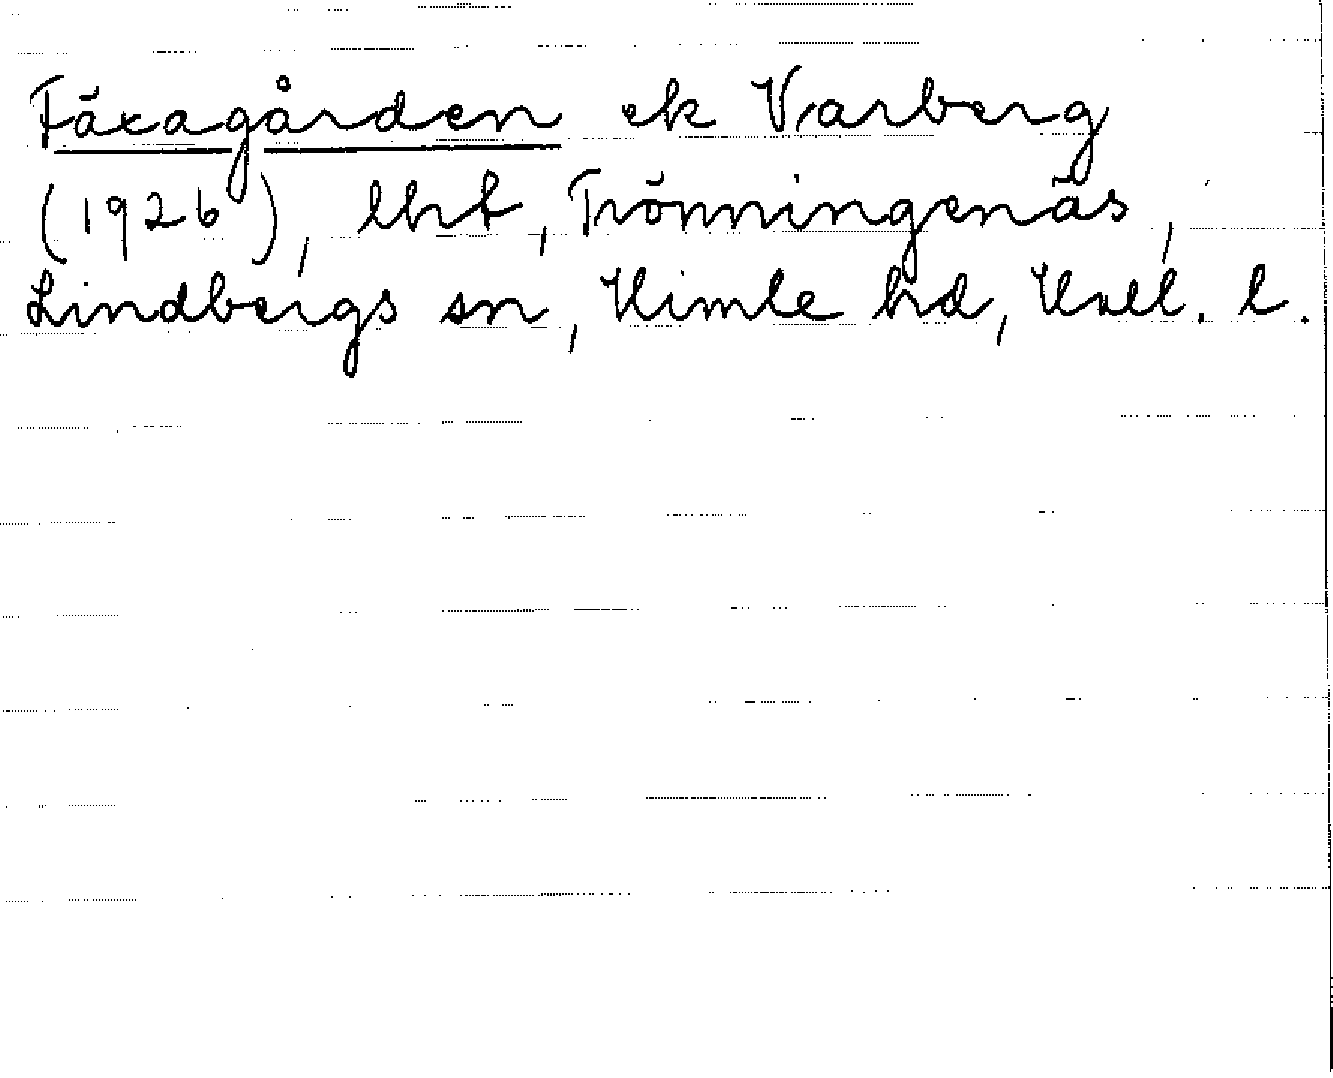 Fäxagården ek Varberg
(1926), lbrf, Trönningenäs,
Lindbergs sn, Himle hd, Hall. l.